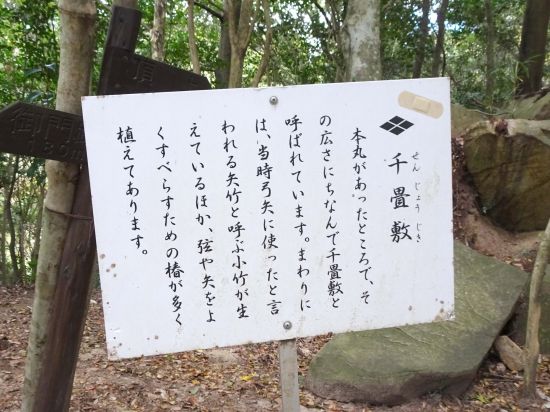 千畳敷
せんじょうじき
本丸があったところで、そ
の広さにちなんで千畳敷と
呼ばれています。まわりに
は、当時弓矢に使ったと言
われる矢竹と呼ぶ小竹が生
えているほか、弦や矢をよ
くすべらすための椿が多く
植えてあります。
頂
御門